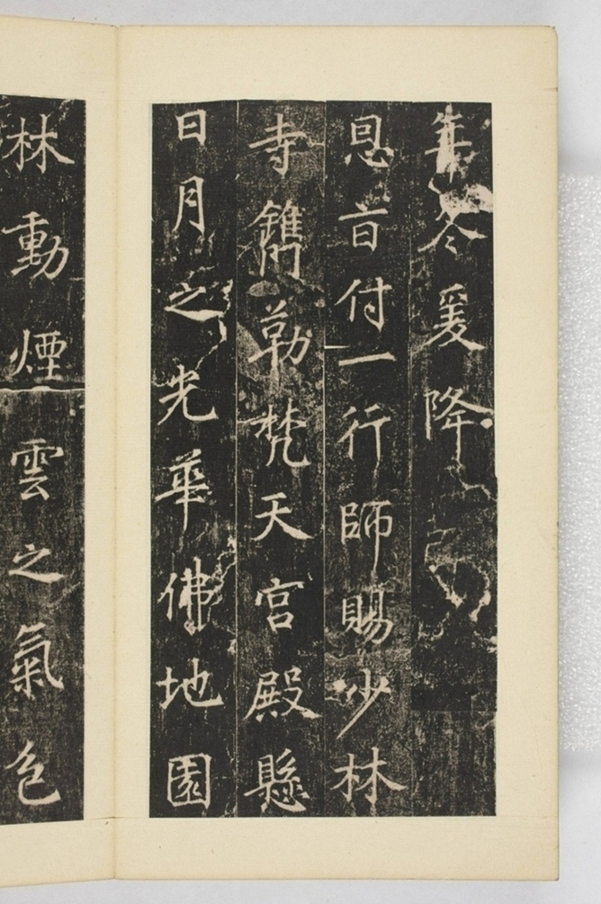 年冬爰降
恩旨付一行師賜少林
寺鐫勒梵天宮殿懸
日月之光華佛地園
林動煙雲之氣色